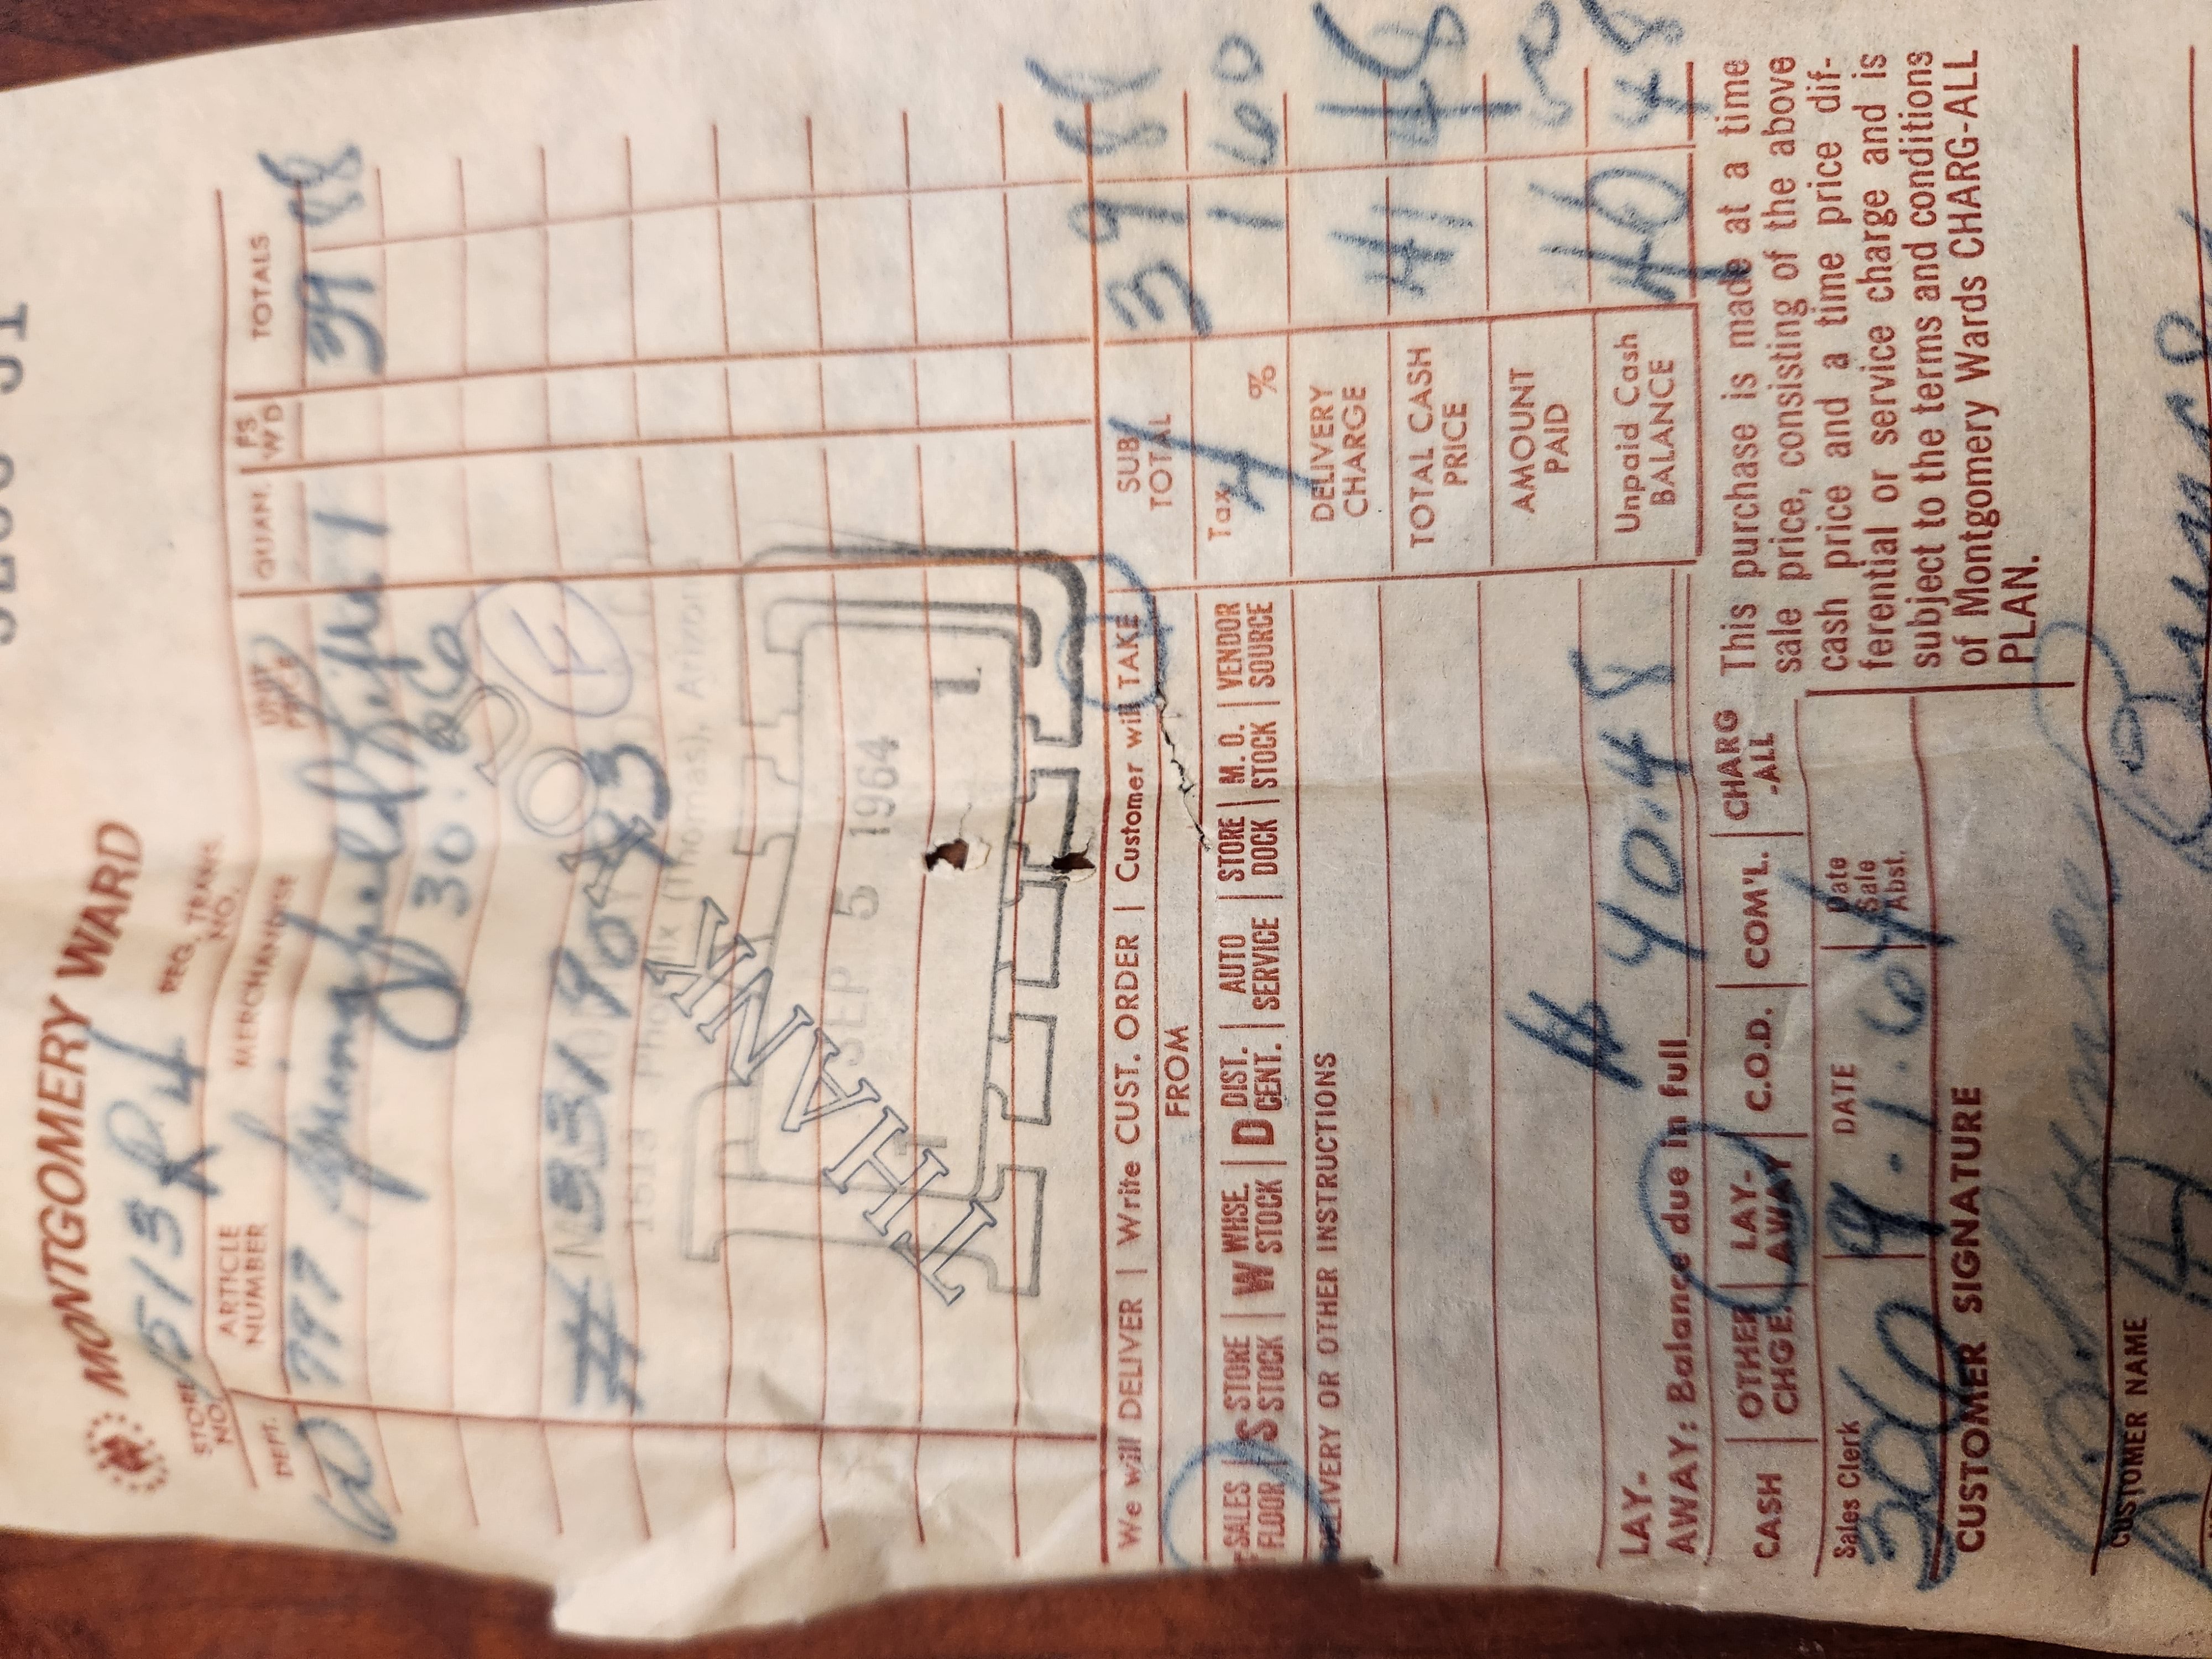 MONTGOMERY WARD
STORE NO. 1513 REG. TRANS. NO.
R4
DEPT. ARTICLE NUMBER MERCHANDISE UNIT PRICE QUAN. FS WD TOTALS
60 797 1 39 88
30
# 331
F
THANK YOU
Phoenix (Thomas), Arizona
SEP 5 1964
1
We will DELIVER | Write CUST. ORDER | Customer will TAKE
FROM
SALES FLOOR | S STORE STOCK | W WHSE. STOCK | D DIST. CENT. | AUTO SERVICE | STORE DOCK | M. O. STOCK | VENDOR SOURCE
DELIVERY OR OTHER INSTRUCTIONS
SUB TOTAL 39 88
Tax 4 % 1 60
DELIVERY CHARGE
TOTAL CASH PRICE 41 48
AMOUNT PAID 1 00
Unpaid Cash BALANCE 40 48
LAY-AWAY: Balance due in full 40.48
CASH | OTHER CHGE. | LAY-AWAY | C.O.D. | COM'L. | CHARG-ALL
Sales Clerk DATE Date Sale Abst.
306 9.1.64
This purchase is made at a time
sale price, consisting of the above
cash price and a time price dif-
ferential or service charge and is
subject to the terms and conditions
of Montgomery Wards CHARG-ALL
PLAN.
CUSTOMER SIGNATURE
CUSTOMER NAME